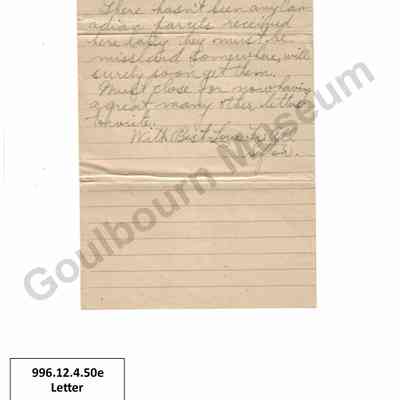 There hasn't been any Can
adian parcels received
here lately they must be
misslaid somewhere, will
surely soon get them.
Must close for now having
a great many other letters
to write.
With Best Love to all
Goulbourn Museum
996.12.4.50e
Letter